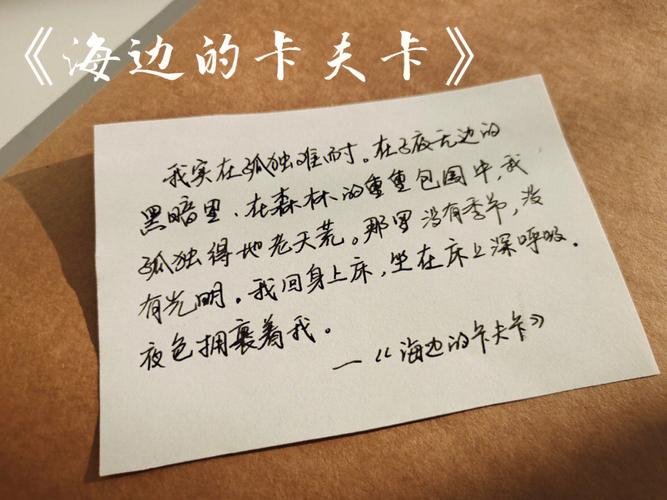 《海边的卡夫卡》
我实在孤独难耐。在子夜无边的
黑暗里、在森林的重重包围中,我
孤独得地老天荒。那里没有季节,没
有光明。我回身上床,坐在床上深呼吸。
夜色拥裹着我。
—《海边的卡夫卡》